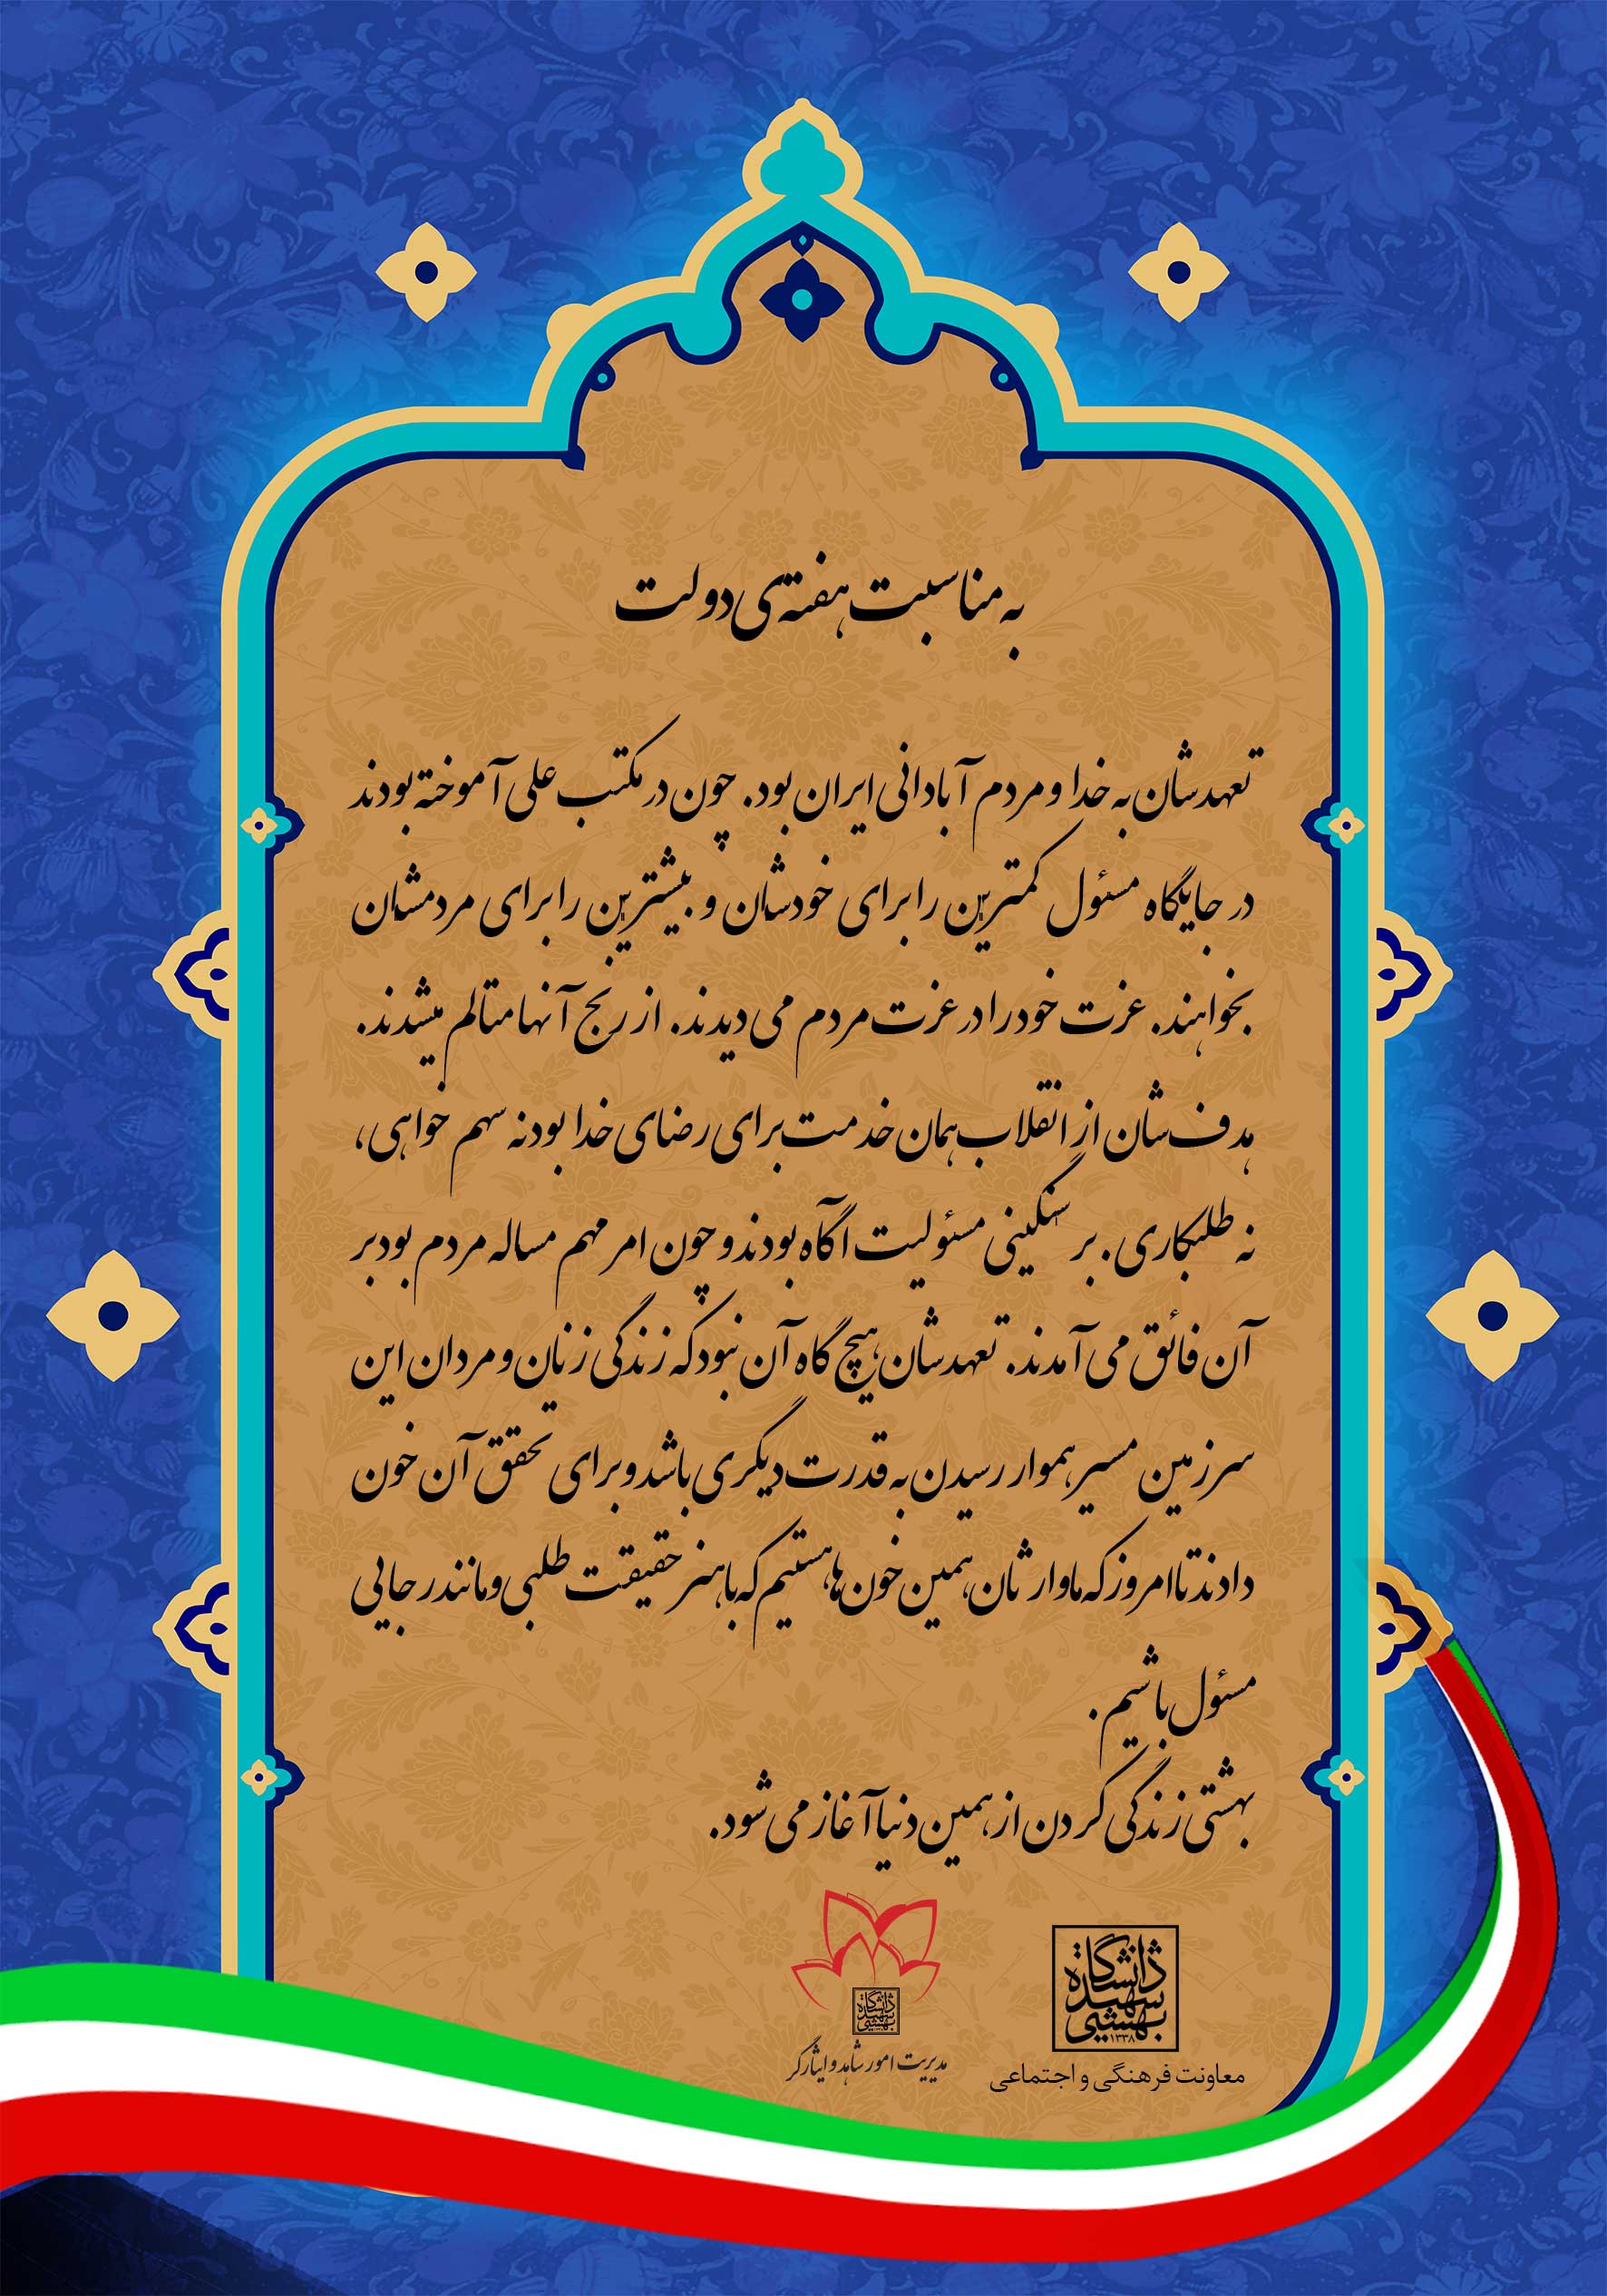 به مناسبت هفته‌ی دولت
تعهدشان به خدا و مردم آبادانی ایران بود. چون در مکتب علی آموخته بودند
در جایگاه مسئول کمترین را برای خودشان و بیشترین را برای مردمشان
بخواهند. عزت خود را در عزت مردم می دیدند. از رنج آنها متالم میشدند.
هدف‌شان از انقلاب همان خدمت برای رضای خدا بود نه سهم خواهی،
نه طلبکاری. بر سنگینی مسئولیت آگاه بودند و چون امر مهم مساله مردم بود بر
آن فائق می آمدند. تعهدشان هیچ گاه آن نبود که زندگی زنان و مردان این
سرزمین مسیر هموار رسیدن به قدرت دیگری باشد و برای تحقق آن خون
دادند تا امروز که ما وارثان همین خون ها هستیم که با هنر حقیقت طلبی و مانند رجایی
مسئول باشیم.
بهشتی زندگی کردن از همین دنیا آغاز می شود.
دانشگاه شهید بهشتی ۱۳۳۸
معاونت فرهنگی و اجتماعی
دانشگاه شهید بهشتی
مدیریت امور شاهد و ایثارگر